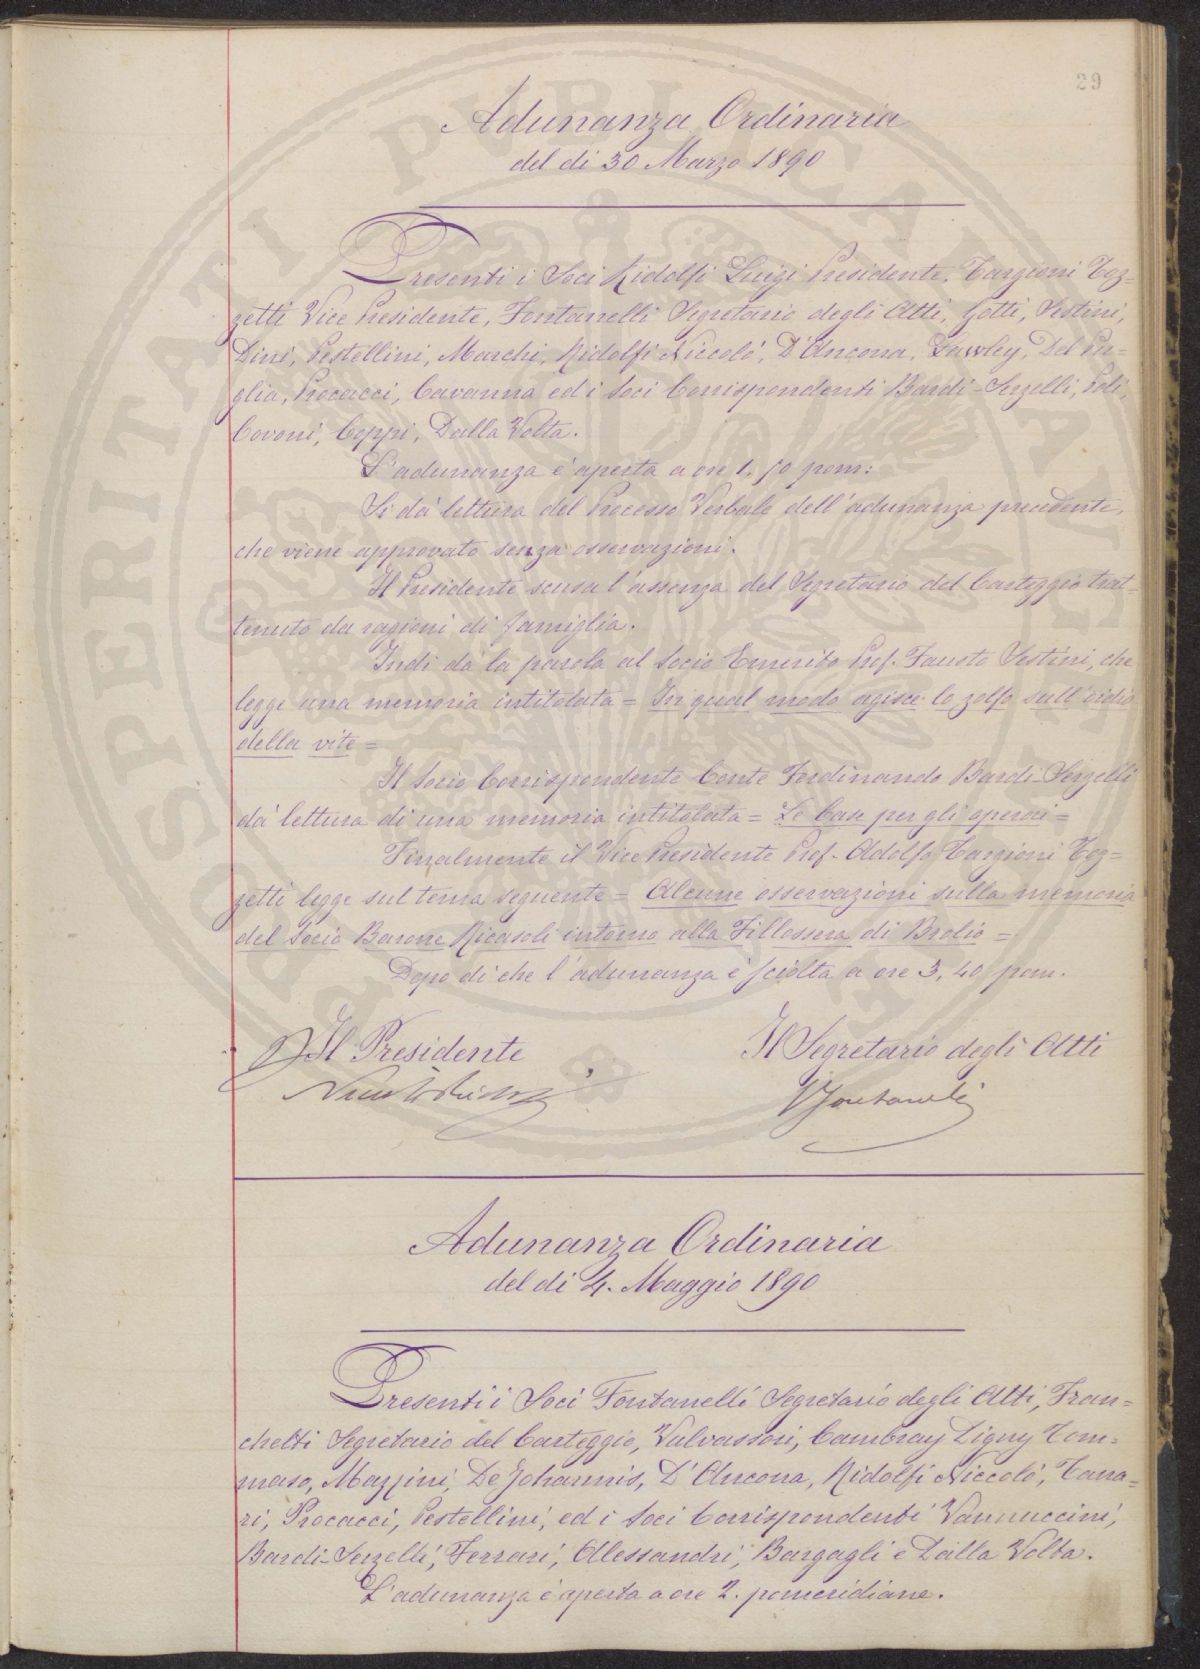 29
Adunanza Ordinaria
del di 30 Marzo 1890
Presenti i Soci Ridolfi Luigi Presidente, Targioni Toz=
zetti Vice Presidente, Fontanelli Segretario degli Atti, Gotti, Sestini,
Dini, Pestellini, Marchi, Ridolfi Niccolò, D'Ancona, Lawley, Del Pu=
glia, Procacci, Cavanna ed i Soci Corrispondenti Bardi-Serzelli, Poli,
Covoni, Coppi, Dalla Volta.
L'adunanza è aperta a ore 1. 50 pom:
Si dà lettura del Processo Verbale dell'adunanza precedente,
che viene approvato senza osservazioni.
Il Presidente scusa l'assenza del Segretario del Carteggio trat=
tenuto da ragioni di famiglia.
Indi dà la parola al Socio Emerito Prof. Fausto Sestini, che
legge una memoria intitolata = In qual modo agisce lo zolfo sull'oidio
della vite =
Il Socio Corrispondente Conte Ferdinando Bardi-Serzelli
dà lettura di una memoria intitolata = Le Case per gli operai =
Finalmente il Vice Presidente Prof. Adolfo Targioni Toz=
zetti legge sul tema seguente = Alcune osservazioni sulla memoria
del Socio Barone Ricasoli intorno alla Fillossera di Brolio =
Dopo di che l'adunanza è sciolta a ore 3, 40 pom.
Il Presidente Il Segretario degli Atti
Fontanelli
Adunanza Ordinaria
del di 4. Maggio 1890
Presenti i Soci Fontanelli Segretario degli Atti, Fran=
chetti Segretario del Carteggio, Valvassori, Cambray Digny Tom=
maso, Mazzini, De Johannis, D'Ancona, Ridolfi Niccolò, Tana=
ri, Procacci, Pestellini, ed i Soci Corrispondenti Vannuccini,
Bardi-Serzelli, Ferrari, Alessandri, Bargagli e Dalla Volta.
L'adunanza è aperta a ore 2. pomeridiane.